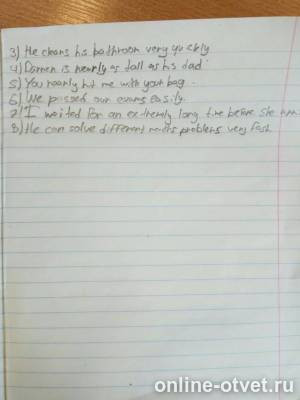 3) He cleans his bathroom very quickly
4) Darren is nearly as tall as his dad
5) You nearly hit me with your bag.
6) We passed our exams easily.
7) I waited for an extremely long time before she
8) He can solve different problems very fast
online-otvet.ru